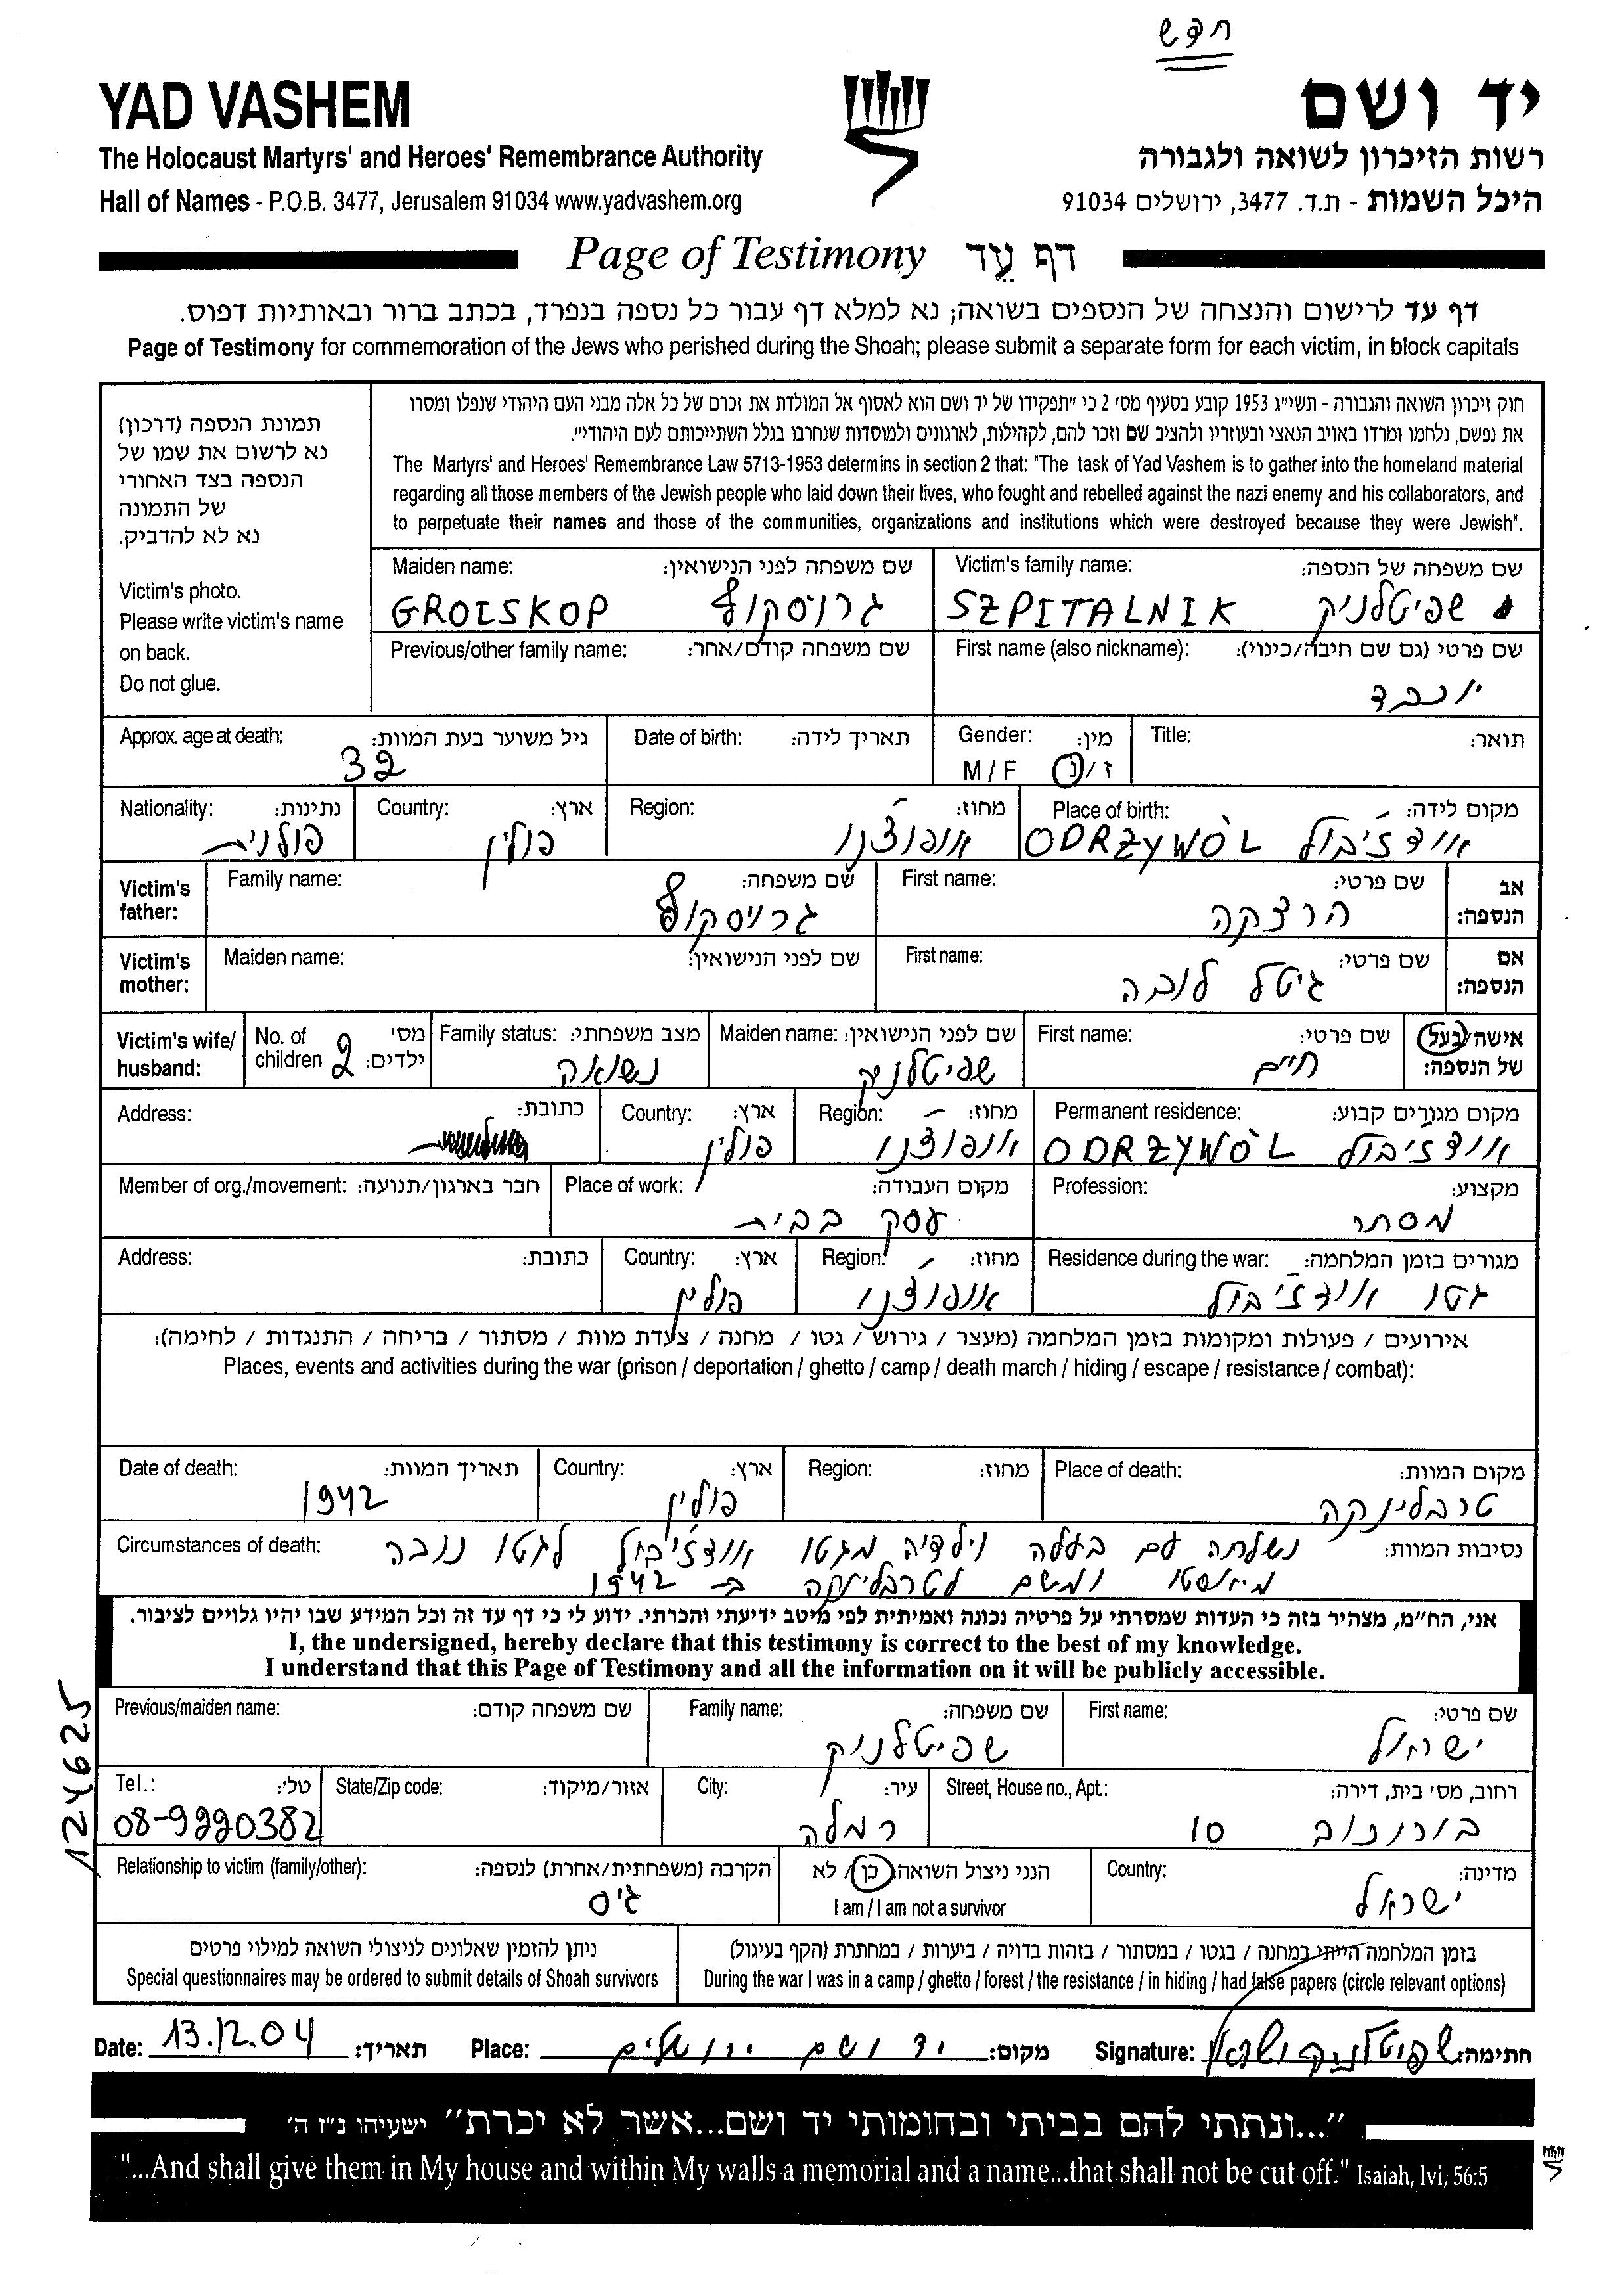 חדש
YAD VASHEM יד ושם
The Holocaust Martyrs' and Heroes' Remembrance Authority רשות הזיכרון לשואה ולגבורה
Hall of Names - P.O.B. 3477, Jerusalem 91034 www.yadvashem.org היכל השמות - ת.ד. 3477, ירושלים 91034
Page of Testimony דף עֵד
דף עד לרישום והנצחה של הנספים בשואה; נא למלא דף עבור כל נספה בנפרד, בכתב ברור ובאותיות דפוס.
Page of Testimony for commemoration of the Jews who perished during the Shoah; please submit a separate form for each victim, in block capitals
תמונת הנספה (דרכון)
נא לרשום את שמו של
הנספה בצד האחורי
של התמונה
נא לא להדביק.
Victim's photo.
Please write victim's name
on back.
Do not glue.
חוק זיכרון השואה והגבורה - תשי״ג 1953 קובע בסעיף מס׳ 2 כי ״תפקידו של יד ושם הוא לאסוף אל המולדת את זכרם של כל אלה מבני העם היהודי שנפלו ומסרו
את נפשם, נלחמו ומרדו באויב הנאצי ובעוזריו ולהציב שם וזכר להם, לקהילות, לארגונים ולמוסדות שנחרבו בגלל השתייכותם לעם היהודי״.
The Martyrs' and Heroes' Remembrance Law 5713-1953 determins in section 2 that: "The task of Yad Vashem is to gather into the homeland material
regarding all those members of the Jewish people who laid down their lives, who fought and rebelled against the nazi enemy and his collaborators, and
to perpetuate their names and those of the communities, organizations and institutions which were destroyed because they were Jewish".
Maiden name: שם משפחה לפני הנישואין: Victim's family name: שם משפחה של הנספה:
GROISKOP גרויסקופ SZPITALNIK שפיטלניק
Previous/other family name: שם משפחה קודם/אחר: First name (also nickname): שם פרטי (גם שם חיבה/כינוי):
יוכבד
Approx. age at death: גיל משוער בעת המוות: Date of birth: תאריך לידה: Gender: מין: Title: תואר:
32 M / F ז / נ
Nationality: נתינות: Country: ארץ: Region: מחוז: Place of birth: מקום לידה:
פולנית פולין אופוצנו ODRZYWÓL אודז'יבול
Victim's father: Family name: שם משפחה: First name: שם פרטי: אב הנספה:
גרויסקופ הרצקה
Victim's mother: Maiden name: שם לפני הנישואין: First name: שם פרטי: אם הנספה:
גיטל לובה
Victim's wife/ husband: No. of children מס׳ ילדים: Family status: מצב משפחתי: Maiden name: שם לפני הנישואין: First name: שם פרטי: אישה/בעל של הנספה:
2 נשואה שפיטלניק חיים
Address: כתובת: Country: ארץ: Region: מחוז: Permanent residence: מקום מגורים קבוע:
פולין אופוצנו ODRZYWÓL אודז'יבול
Member of org./movement: חבר בארגון/תנועה: Place of work: מקום העבודה: Profession: מקצוע:
עסק בבית מסחר
Address: כתובת: Country: ארץ: Region: מחוז: Residence during the war: מגורים בזמן המלחמה:
פולין אופוצנו גטו אודז'יבול
אירועים / פעולות ומקומות בזמן המלחמה (מעצר / גירוש / גטו / מחנה / צעדת מוות / מסתור / בריחה / התנגדות / לחימה):
Places, events and activities during the war (prison / deportation / ghetto / camp / death march / hiding / escape / resistance / combat):
Date of death: תאריך המוות: Country: ארץ: Region: מחוז: Place of death: מקום המוות:
1942 פולין טרבלינקה
Circumstances of death: נסיבות המוות: נשלחה עם בעלה וילדיה מגטו אודז'יבול לגטו נובה
מיאסטו ומשם לטרבלינקה ב- 1942
אני, הח״מ, מצהיר בזה כי העדות שמסרתי על פרטיה נכונה ואמיתית לפי מיטב ידיעתי והכרתי. ידוע לי כי דף עד זה וכל המידע שבו יהיו גלויים לציבור.
I, the undersigned, hereby declare that this testimony is correct to the best of my knowledge.
I understand that this Page of Testimony and all the information on it will be publicly accessible.
124625
Previous/maiden name: שם משפחה קודם: Family name: שם משפחה: First name: שם פרטי:
שפיטלניק ישראל
Tel.: טל׳: State/Zip code: אזור/מיקוד: City: עיר: Street, House no., Apt.: רחוב, מס׳ בית, דירה:
08-9220382 רמלה בורוכוב 10
Relationship to victim (family/other): הקרבה (משפחתית/אחרת) לנספה: הנני ניצול השואה: כן / לא Country: מדינה:
גיס I am / I am not a survivor ישראל
ניתן להזמין שאלונים לניצולי השואה למילוי פרטים
Special questionnaires may be ordered to submit details of Shoah survivors
בזמן המלחמה הייתי במחנה / בגטו / במסתור / בזהות בדויה / ביערות / במחתרת (הקף בעיגול)
During the war I was in a camp / ghetto / forest / the resistance / in hiding / had false papers (circle relevant options)
Date: 13.12.04 תאריך: Place: יד ושם ירושלים מקום: Signature: שפיטלניק ישראל חתימה:
״...ונתתי להם בביתי ובחומותי יד ושם...אשר לא יכרת״ ישעיהו נ״ו ה׳
"...And shall give them in My house and within My walls a memorial and a name...that shall not be cut off." Isaiah, lvi, 56:5